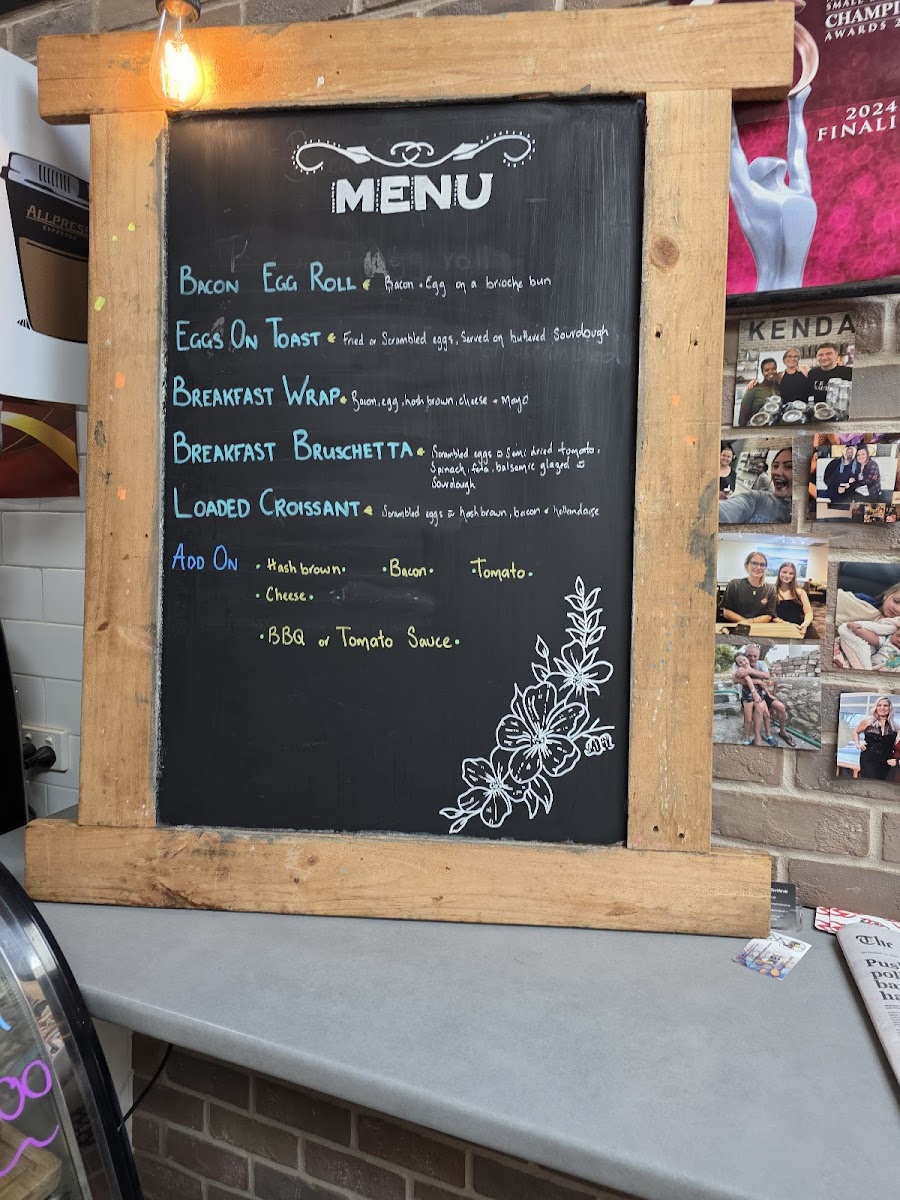 MENU
BACON EGG ROLL Bacon + Egg on a brioche bun
EGGS ON TOAST Fried or Scrambled eggs, Served on buttered Sourdough
BREAKFAST WRAP Bacon, egg, hash brown, cheese + Mayo
BREAKFAST BRUSCHETTA Scrambled eggs Semi dried tomato,
Spinach, feta, balsamic glazed
Sourdough
LOADED CROISSANT Scrambled eggs hash brown, bacon + hollandaise
ADD ON • Hash brown • • Bacon • • Tomato •
• Cheese •
• BBQ or Tomato Sauce •
ALLPRESS
ESPRESSO
SMALL
CHAMPI
AWARDS 2
2024
FINALI
KENDA
The